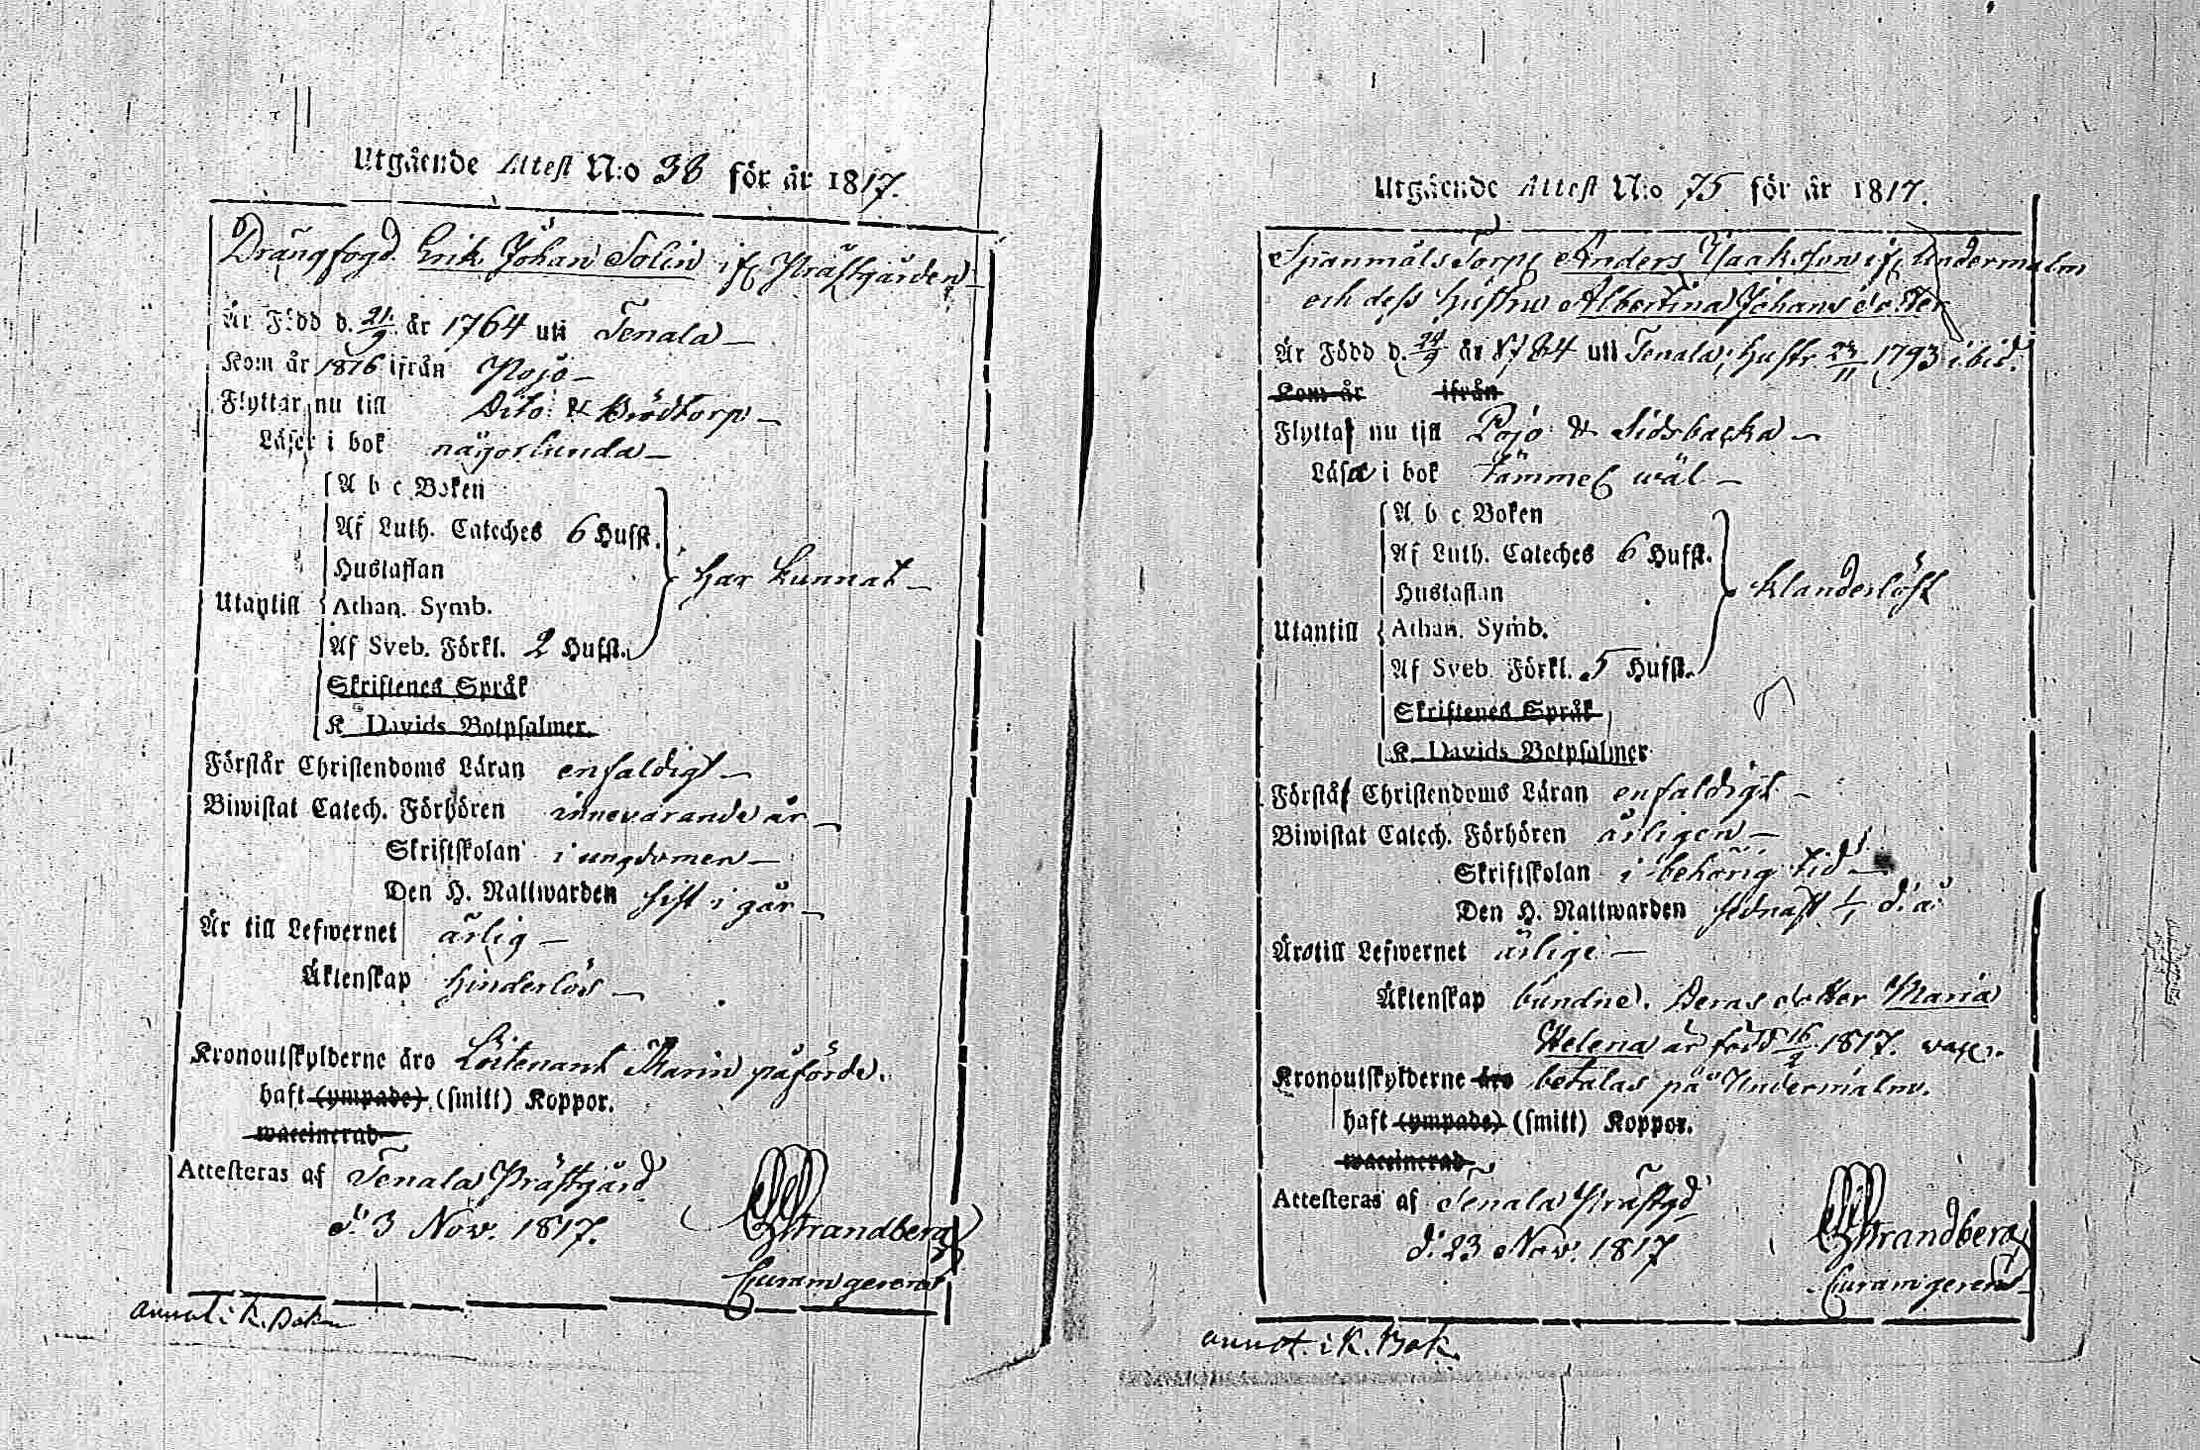 Utgående Attest N:o 38 för år 1817.
Drängfogd. Erik Johan Solin if. Prästgården
Är Född d. 21/9 år 1764 uti Tenala
Kom år 1816 ifrån Pojo
Flyttar nu till Dito & Brödtorp
Läser i bok någorlunda
A b c Boken
Af Luth. Cateches 6 Hufst.
Hustaflan
har kunnat
Utantill Athan. Symb.
Af Sveb. Förkl. 2 Hufst.
Skriftenes Språk
K. Davids Botpsalmer.
Förstår Christendoms Läran enfaldigt
Biwistat Catech. Förhören innevarande år
Skriftskolan i ungdomen
Den H. Nattwarden sist i går
Är till Lefwernet ärlig
Äktenskap hinderlös
Kronoutskylderne äro Löitenant Marin påförde.
haft (ympade) (smitt) Koppor.
waccinerad
Attesteras af Tenala Prästgård
d. 3 Nov. 1817.
Strandberg
Curam gerens
annot. i K. Boken
Utgående Attest N:o 75 för år 1817.
Spanmåls Torp. Anders Isaaksson if. Undermalm
och dess hustru Albertina Johansdotter
Är Född d. 24/9 år 1784 uti Tenala; hustr. 23/11 1793 ibid.
Kom år ifrån
Flytta nu till Pojo & Sidsbacka
Läsa i bok tämmel. wäl
A b c Boken
Af Luth. Cateches 6 Hufst.
Hustaflan
klanderlöst
Utantill Athan. Symb.
Af Sveb. Förkl. 5 Hufst.
Skriftenes Språk
K. Davids Botpsalmer
Förstå Christendoms Läran enfaldigt
Biwistat Catech. Förhören årligen
Skriftskolan i behörig tid
Den H. Nattwarden sednast d. å.
Äro till Lefwernet ärlige
Äktenskap bundne. Deras dotter Maria
Helena är född 16/9 1817. vacc.
Kronoutskylderne äro betalas på Undermalm.
haft (ympade) (smitt) Koppor.
waccinerad
Attesteras af Tenala Prästgd
d. 23 Nov. 1817
Strandberg
Curam gerens
annot. i K. Bok.